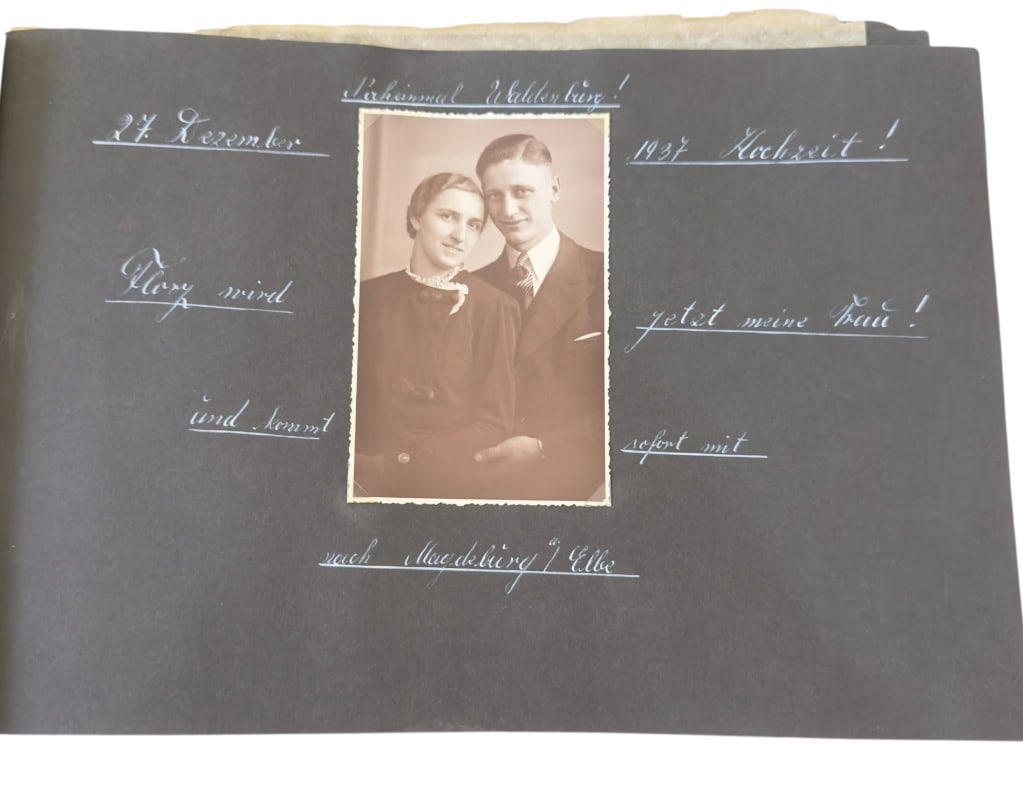 Nocheinmal Waldenburg!
27. Dezember 1937 Hochzeit!
Flory wird jetzt meine Frau!
und kommt sofort mit
nach Magdeburg a/ Elbe